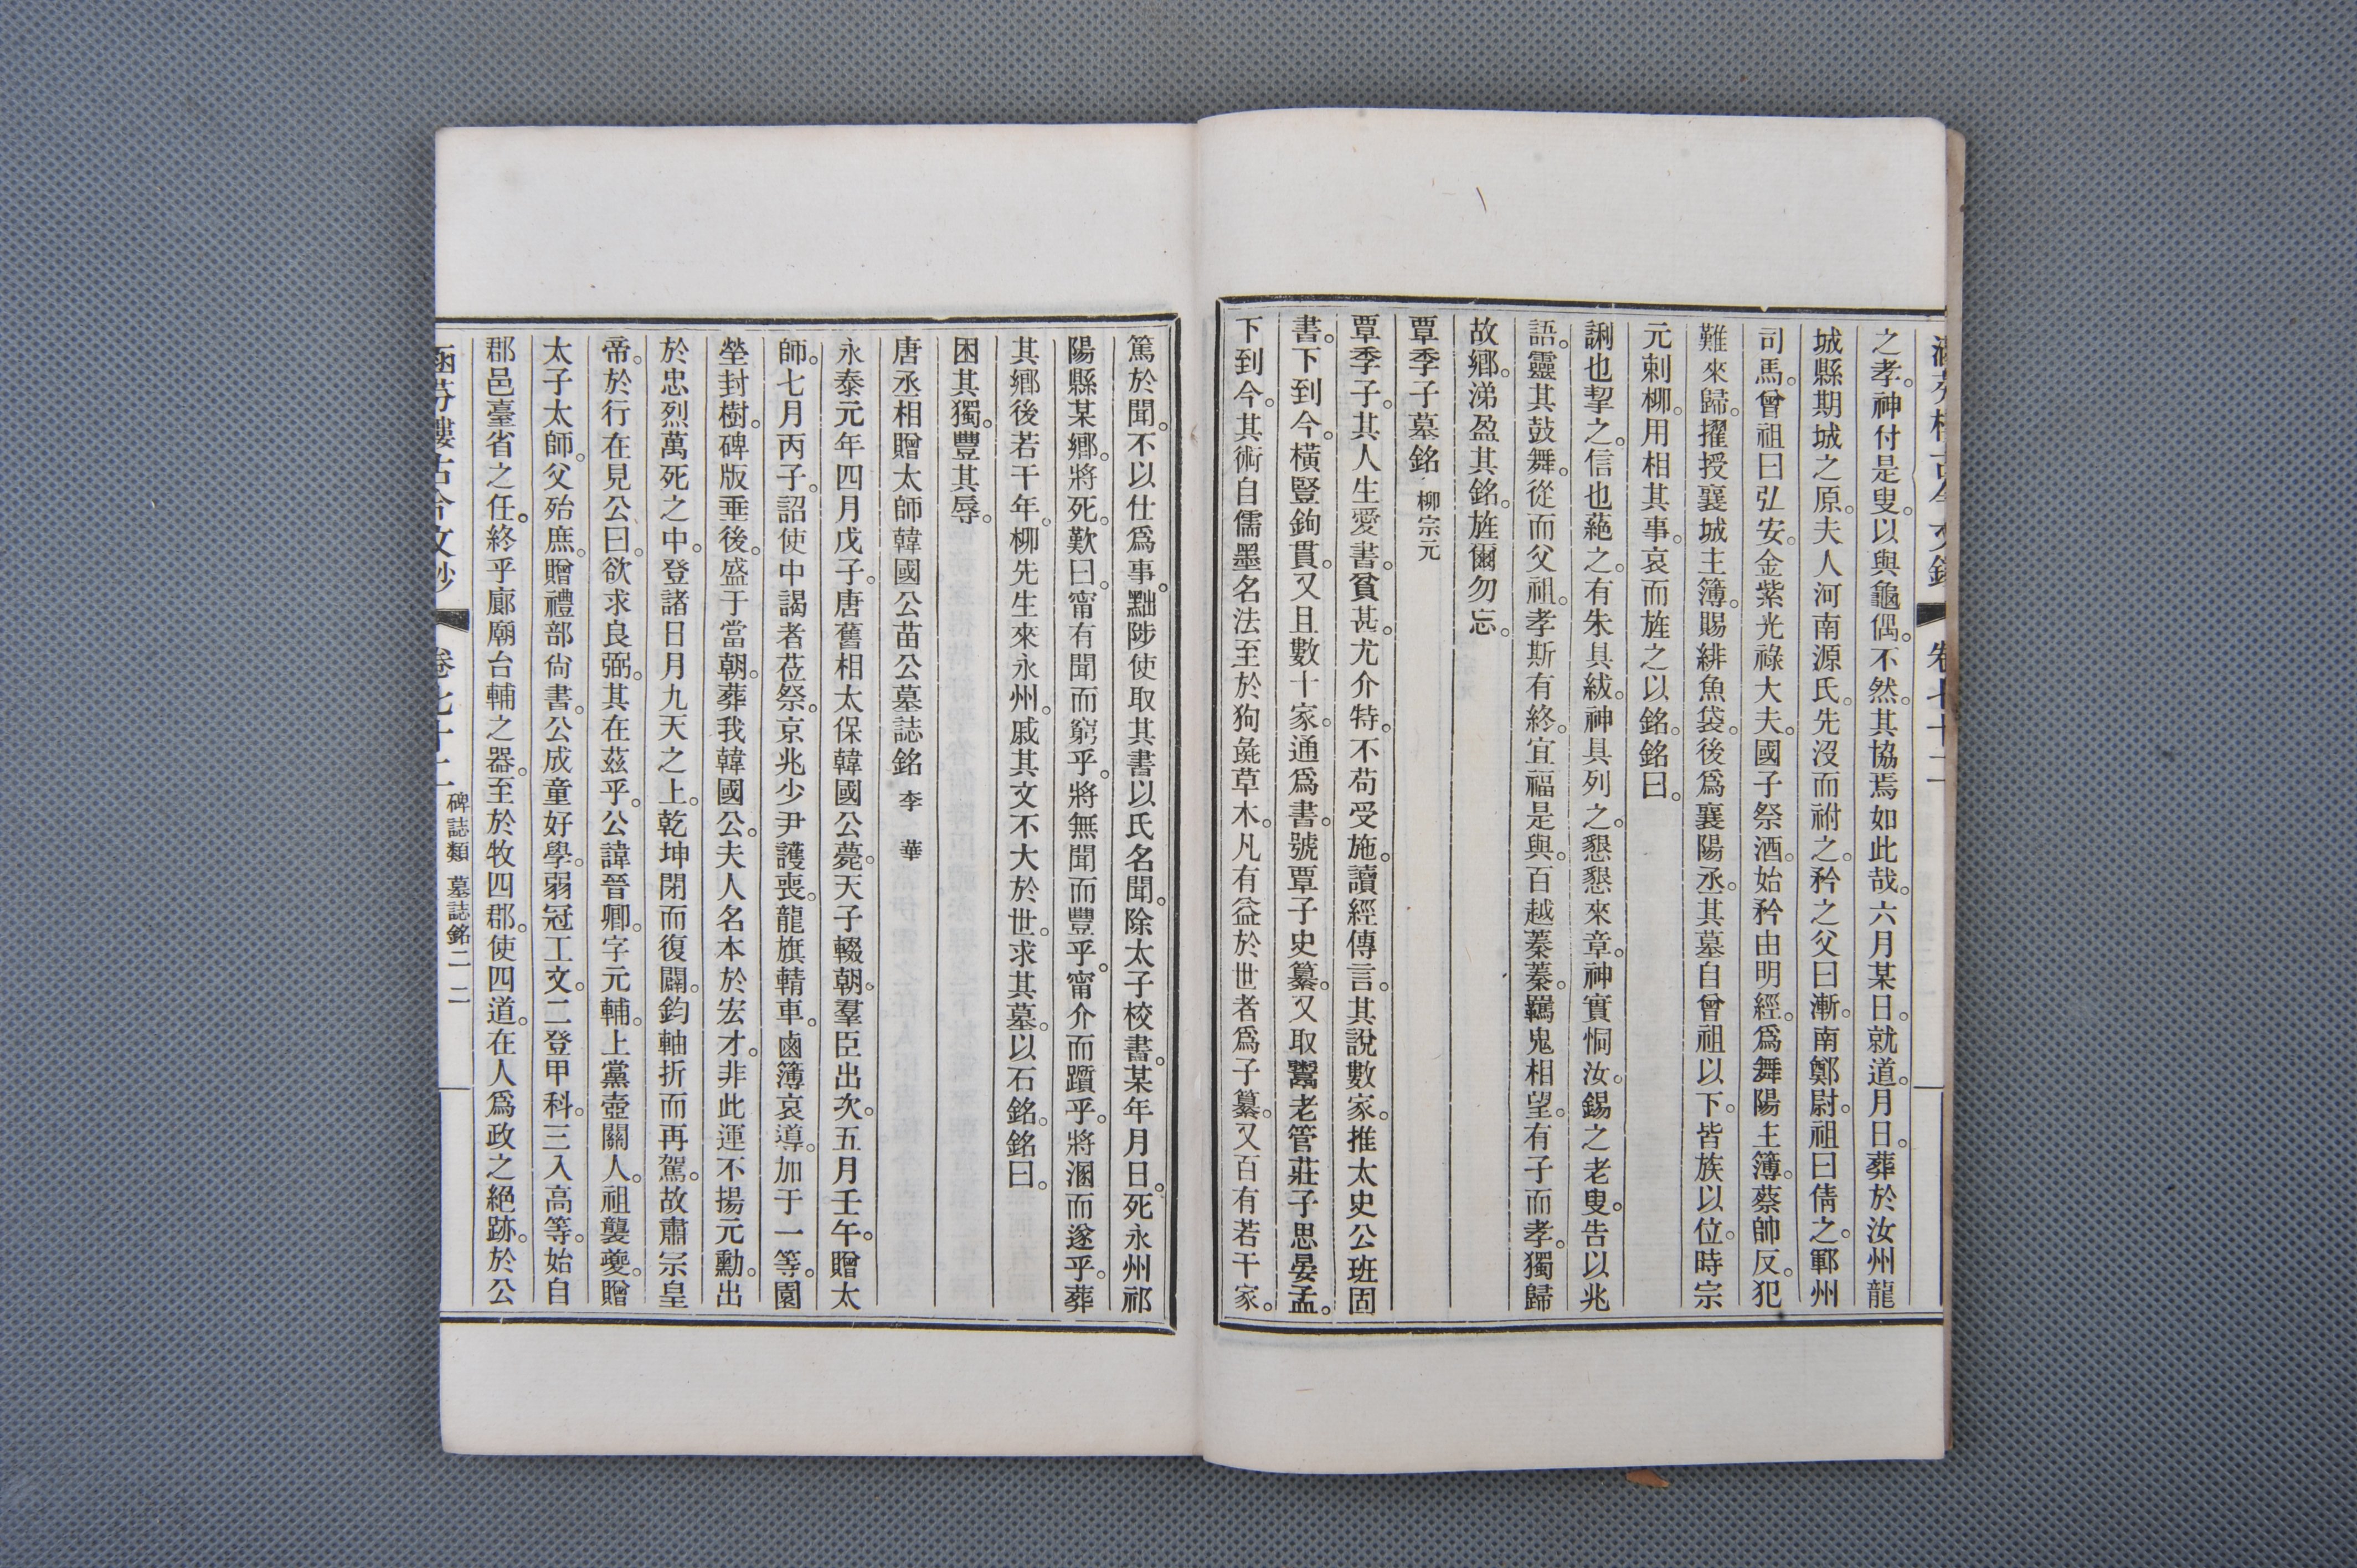 之孝。神付是叟。以與龜偶。不然。其協焉如此哉。六月某日。就道。月日。葬於汝州龍
城縣期城之原。夫人河南源氏。先沒而祔之。矜之父曰漸。南鄭尉。祖曰倩之。鄆州
司馬。曾祖曰弘安。金紫光祿大夫。國子祭酒。始矜由明經。爲舞陽主簿。蔡帥反。犯
難來歸。擢授襄城主簿。賜緋魚袋。後爲襄陽丞。其墓自曾祖以下。皆族以位。時宗
元刺柳。用相其事。哀而旌之以銘。銘曰。
誗也挈之。信也蕝之。有朱具紱。神具列之。懇懇來章。神實恫汝。錫之老叟。告以兆
語。靈其鼓舞。從而父祖。孝斯有終。宜福是與。百越蓁蓁。羈鬼相望。有子而孝。獨歸
故鄉。涕盈其銘。旌爾勿忘。
覃季子墓銘 柳宗元
覃季子。其人生愛書。貧甚。尤介特。不苟受施。讀經傳言。其說數家。推太史公班固
書。下到今。橫豎鉤貫。又且數十家。通爲書。號覃子史纂。又取鬻老管莊子思晏孟。
下到今。其術自儒墨名法至於狗彘草木。凡有益於世者爲子纂。又百有若干家。
篤於聞。不以仕爲事。黜陟使取其書以氏名聞。除太子校書。某年月日。死永州祁
陽縣某鄉。將死。歎曰。甯有聞而窮乎。將無聞而豐乎。甯介而躓乎。將溷而遂乎。葬
其鄉後若干年。柳先生來永州。戚其文不大於世。求其墓。以石銘。銘曰。
困其獨。豐其辱。
唐丞相贈太師韓國公苗公墓誌銘 李 華
永泰元年四月戊子。唐舊相太保韓國公薨。天子輟朝。羣臣出次。五月壬午。贈太
師。七月丙子。詔使中謁者莅祭。京兆少尹護喪。龍旗輤車。鹵簿哀導。加于一等。園
塋封樹。碑版垂後。盛于當朝。葬我韓國公。夫人名本於宏才。非此運不揚元勳。出
於忠烈萬死之中。登諸日月九天之上。乾坤閉而復闢。鈞軸折而再駕。故肅宗皇
帝。於行在見公。曰。欲求良弼。其在茲乎。公諱晉卿。字元輔。上黨壺關人。祖襲夔。贈
太子太師。父殆庶。贈禮部尙書。公成童好學。弱冠工文。二登甲科。三入高等。始自
郡邑臺省之任。終乎廊廟台輔之器。至於牧四郡。使四道。在人爲政之絕跡。於公
涵芬樓古今文鈔 卷七十二 碑誌類 墓誌銘二 二